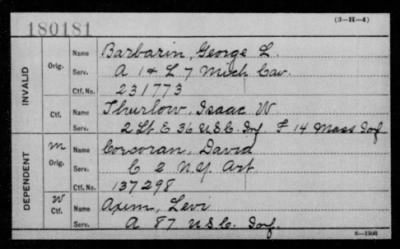 180181
(3-H-4)
INVALID
Orig.
Name Barbarin, George L.
Serv. A 1 & L 7 Mich Cav.
Ctf. No. 231773
Ctf.
Name Thurlow, Isaac W
Serv. 2 Lt. E 36 U.S.C. Inf. F 14 Mass Inf
DEPENDENT
M
Orig.
Name Corsoran, David
Serv. C 2 N.Y. Art.
Ctf. No. 137298
W
Ctf.
Name Axum, Levi
Serv. A 87 U.S.C. Inf.